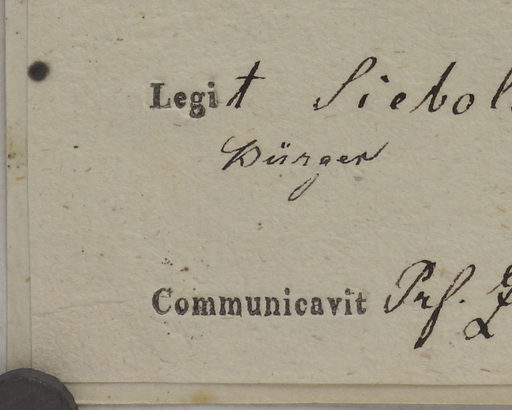 Legit Siebol
Bürger
Communicavit Prf. Z